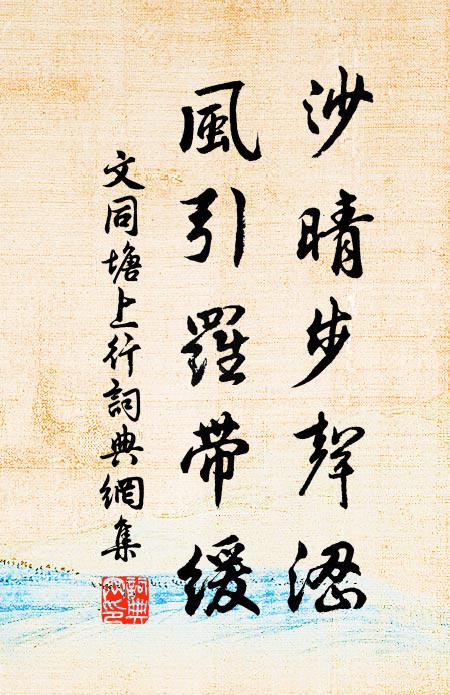 沙晴步聲
風引羅帶緩
文同塘上行詞典網集